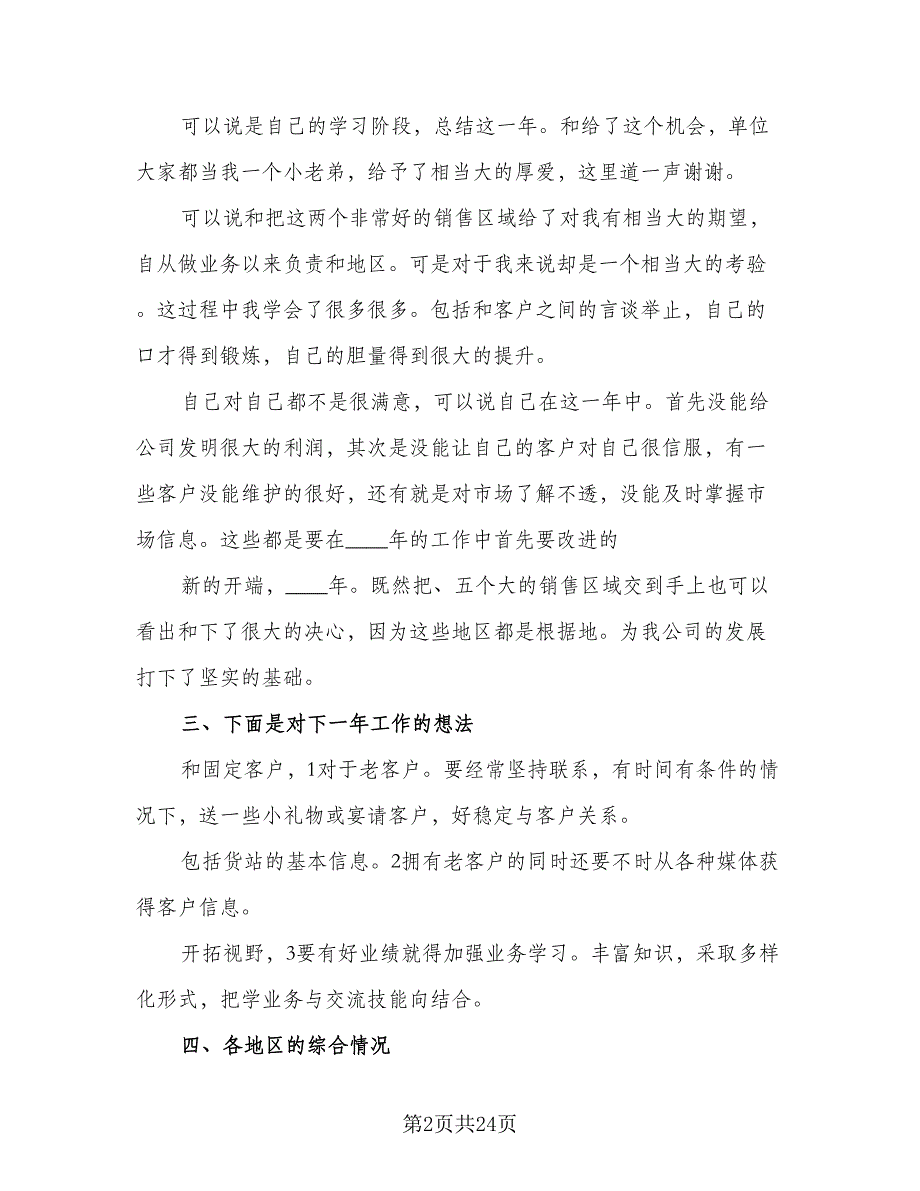 可以说是自己的学习阶段，总结这一年。和给了这个机会，单位
大家都当我一个小老弟，给予了相当大的厚爱，这里道一声谢谢。
可以说和把这两个非常好的销售区域给了对我有相当大的期望，
自从做业务以来负责和地区。可是对于我来说却是一个相当大的考验
。这过程中我学会了很多很多。包括和客户之间的言谈举止，自己的
口才得到锻炼，自己的胆量得到很大的提升。
自己对自己都不是很满意，可以说自己在这一年中。首先没能给
公司发明很大的利润，其次是没能让自己的客户对自己很信服，有一
些客户没能维护的很好，还有就是对市场了解不透，没能及时掌握市
场信息。这些都是要在____年的工作中首先要改进的
新的开端，____年。既然把、五个大的销售区域交到手上也可以
看出和下了很大的决心，因为这些地区都是根据地。为我公司的发展
打下了坚实的基础。
三、下面是对下一年工作的想法
和固定客户，1对于老客户。要经常坚持联系，有时间有条件的情
况下，送一些小礼物或宴请客户，好稳定与客户关系。
包括货站的基本信息。2拥有老客户的同时还要不时从各种媒体获
得客户信息。
开拓视野，3要有好业绩就得加强业务学习。丰富知识，采取多样
化形式，把学业务与交流技能向结合。
四、各地区的综合情况
第2页共24页